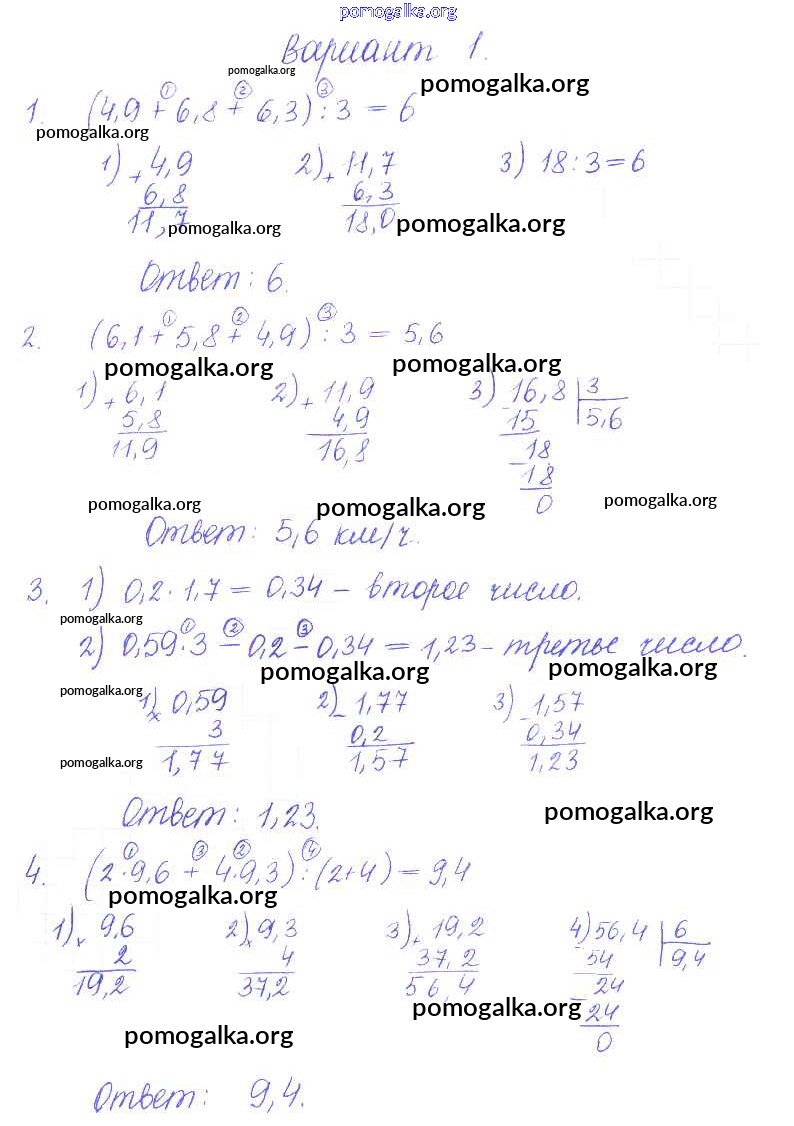 pomogalka.org
Вариант 1.
pomogalka.org
pomogalka.org
1. (4,9 + 6,8 + 6,3) : 3 = 6
① ② ③
pomogalka.org
1) + 4,9 2) + 11,7 3) 18 : 3 = 6
6,8 6,3
11,7 18,0
pomogalka.org pomogalka.org
Ответ: 6.
① ② ③
2. (6,1 + 5,8 + 4,9) : 3 = 5,6
pomogalka.org pomogalka.org
1) + 6,1 2) + 11,9 3) 16,8 | 3
5,8 4,9 - 15 5,6
11,9 16,8 - 18
18
0
pomogalka.org pomogalka.org pomogalka.org
Ответ: 5,6 км/ч.
3. 1) 0,2 · 1,7 = 0,34 – второе число.
pomogalka.org
① ② ③
2) 0,59 · 3 – 0,2 – 0,34 = 1,23 – третье число.
pomogalka.org pomogalka.org
pomogalka.org
1) x 0,59 2) - 1,77 3) - 1,57
3 0,2 0,34
1,77 1,57 1,23
pomogalka.org
Ответ: 1,23.
pomogalka.org
① ③ ② ④
4. (2 · 9,6 + 4 · 9,3) : (2 + 4) = 9,4
pomogalka.org
1) x 9,6 2) x 9,3 3) + 19,2 4) 56,4 | 6
2 4 37,2 - 54 9,4
19,2 37,2 56,4 - 24
24
0
pomogalka.org
pomogalka.org
Ответ: 9,4.